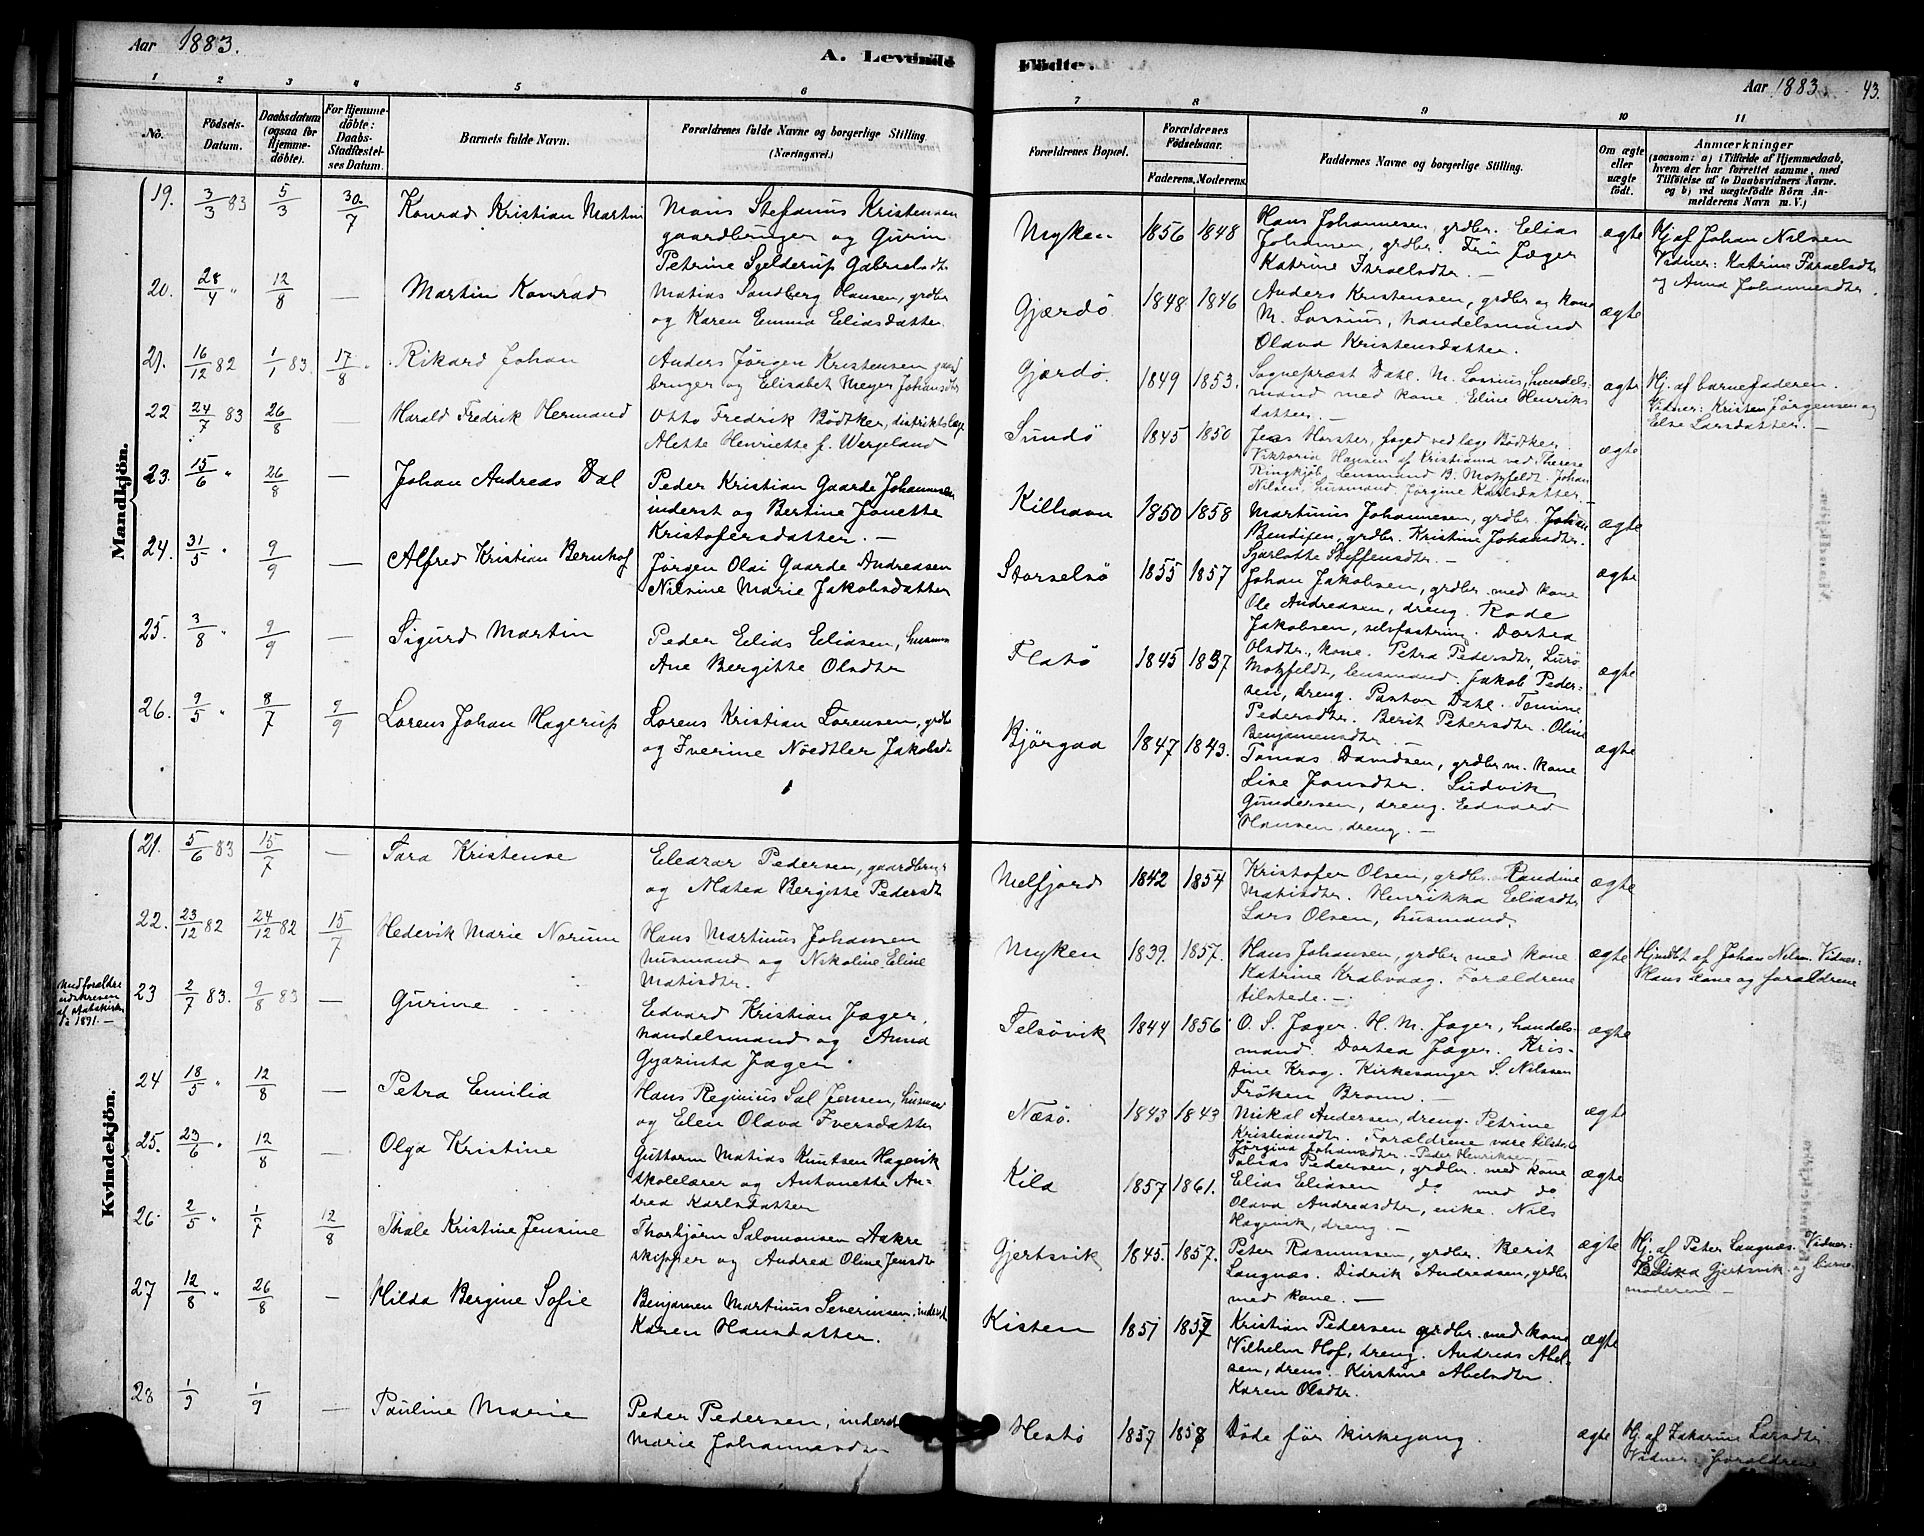 Aar 1883.
A. Levende
Födte.
Aar 1883. 43.
1 2 3 4 5 6 7 8 9 10 11
No.
Födsels-Datum.
Daabsdatum (ogsaa for Hjemme-döbte).
For Hjemme-döbte: Daabs-Stadfæstel-ses Datum.
Barnets fulde Navn.
Forældrenes fulde Navne og borgerlige Stilling.
(Næringsvei.)
Forældrenes Bopæl.
Forældrenes Födselsaar.
Faderens. Moderens.
Faddernes Navne og borgerlige Stilling.
Om ægte eller uægte födt.
Anmærkninger
(saasom: a) i Tilfælde af Hjemmedaab, hvem der har forrettet samme, med Tilföielse af to Daabsvidners Navne. og b) ved uægtefödte Börn An-melderens Navn m. V.)
Mandkjön.
19. 3/3 83 5/3 30/7 Konrad Kristian Martin
Mons Stefanus Kristensen
gaardbruger og Gurin
Petrine Sjelderup Gabrielsdtr
Myken 1856 1848
Hans Johannesen, grdbr. Elias
Johansen, grdbr. Trin Jæger
Katrine Israelsdtr. —
ægte
Hj. af Johan Nilsen
Vidner: Katrine Israelsdtr
og Anna Johannesdtr.
20. 28/4 " 12/8 — Martin Konrad
Matias Sandberg Hansen, grdbr
og Karen Emma Eliasdatter.
Gjærdö 1848. 1846
Anders Kristensen, grdbr og kone
M. Lossius, handelsmand
Olava Kristensdatter.
ægte
21. 16/12 82 1/1 83. 17/8 " Rikard Johan
Anders Jörgen Kristensen gaard
bruger og Elisabet Meyer Johansdtr
Gjærdö. 1849 1853.
Sognepræst Dahl. M. Lossius, handels-
mand med kone. Eline Henriks
datter. —
ægte
Hj. af barnefaderen.
Vidner: Kristen Jörgensen og
Else Larsdatter. —
22 24/7 83 26/8 Harald Fredrik Hermand
Otto Fredrik Bödtker, distriktslæge
Alette Henriette f. Wergeland
Sundö 1845 1850
Jens Horster, foged ved læge Bödtker
Viktoria Hansen af Kristiania ved Therese
Ringkjöb, Lensmand B. Motzfeldt. Johan
Nilsen, husmand. Jörgine Karlsdatter.
ægte
23. 15/6 " 26/8 — Johan Andreas Dal
Peder Kristian Gaarde Johannesen
inderst og Bertine Jonette
Kristofersdatter. —
Kilhavn 1850 1858
Martinus Johannesen, grdbr. Johan
Bendixen, grdbr. Kristine Johansdtr.
Sjarlotte Steffensdtr. —
ægte
24. 31/5 " 9/9 — Alfred Kristian Bernhof
Jörgen Olai Gaarde Andreasen
Nilsine Marie Jakobsdatter
Storselsö 1855 1857
Johan Jakobsen, grdbr. med kone
Ole Andreasen, dreng. Rode
Jakobsen, selvfostring. Dortea
Olsdtr, kone. Petra Pedersdtr, Lurö
ægte
25. 3/8 " 9/9 — Sigurd Martin
Peder Elias Eliasen, husmn
Ane Bergitte Olsdtr
Flatö 1845 1857
Motzfeldt, lensmand. Jakob Peder-
sen, dreng. Pastor Dahl. Tomine
Pedersdtr. Berit Petersdtr. Oline
Benjamensdtr. —
ægte
26. 9/5 " 8/7 9/9 Lorens Johan Hagerup
Lorens Kristian Lorensen, grdbr
og Iverine Nöedtler Jakobsdt
Bjørgaa 1847 1843.
Tomas Davidsen, grdbr m. kone
Lise Jonsdtr. Ludvik
Gundersen, dreng. Edvard
Hansen, dreng. —
ægte
Kvindekjön.
21. 5/6 83 15/7 — Sara Kristense
Eleazar Pedersen, gaardbruger
og Matea Bergitte Pedersdt
Melfjord 1842 1854
Kristofer Olsen, grdbr. Randine
Matisdtr. Henrikka Eliasdtr
Lars Olsen, husmand.
ægte
22. 23/12 82 24/12 82 15/7 Hedevik Marie Norum
Hans Martinus Johansen
husmand og Nikoline Eline
Matisdtr.
Myken 1839. 1857.
Hans Johansen, grdbr med kone
Katrine Krabvaag. Forældrene
tilstede. —
ægte
Hjmdbt af Johan Nilsen. Vidner:
Hans kone og forældrene
Med forældre
udskreven
af statskirken
1891. —
23 2/7 83. 9/8 83 — Gurine
Edvard Kristian Jæger,
handelsmand og Anna
Gyazinta Jæger.
Selsövik 1844 1856
O. S. Jæger. H. M. Jæger, handels-
mand. Dortea Jæger. Kris-
tine Krog. Kirkesanger S. Nilssen
Fröken Bronn. —
ægte
24 18/5 " 12/8 — Petra Emilia
Hans Reginius Sal Jensen, husmand
og Elen Olava Iversdatter
Næsö. 1843 1843
Mikal Andersen, dreng. Petrine
Kristiansdtr. Forældrene vare tilstede
Jörgina Johansdtr. — Peder Henriksen, —
ægte
25. 23/6 " 12/8 — Olga Kristine
Guttorm Matias Knutsen Hagevik
skolelærer og Antonette An-
drea Karlsdatter
Kila 1857 1861.
Tobias Pedersen, grdbr. med kone
Elias Eliasen do med do
Olava Andreasdtr, enke. Nils
Hagevik, dreng. —
ægte
26. 2/5 " 1/7 12/8 Thale Kristine Jensine
Thorbjörn Salomonsen Aakre
skipper og Andrea Oline Jensdtr
Gjertsvik 1845. 1857.
Peter Rasmussen, grdbr. Berit
Langnæs. Didrik Andreasen, grdbr
med kone. —
ægte
Hj. af Peter Langnæs. Vidner:
Gjertsvik og barne-
moderen —
27 12/8 " 26/8 — Hilda Bergine Sofie
Benjamen Martinus Severinsen, inderst
Karen Hansdatter.
Kisten 1851 1857
Kristian Pedersen grdbr. med kone
Vilhelm Hof, dreng. Andreas Abel-
sen, dreng. Kirstine Abelsdtr.
Karen Olsdtr.
ægte
28 1/9 1/9 — Pauline Marie
Peder Pedersen, inderst
Marie Johannesdtr
Hestö 1857 1858
Döde för kirkegang.
ægte
Hj. af Zakarine Larsdtr.
Vidner: forældrene